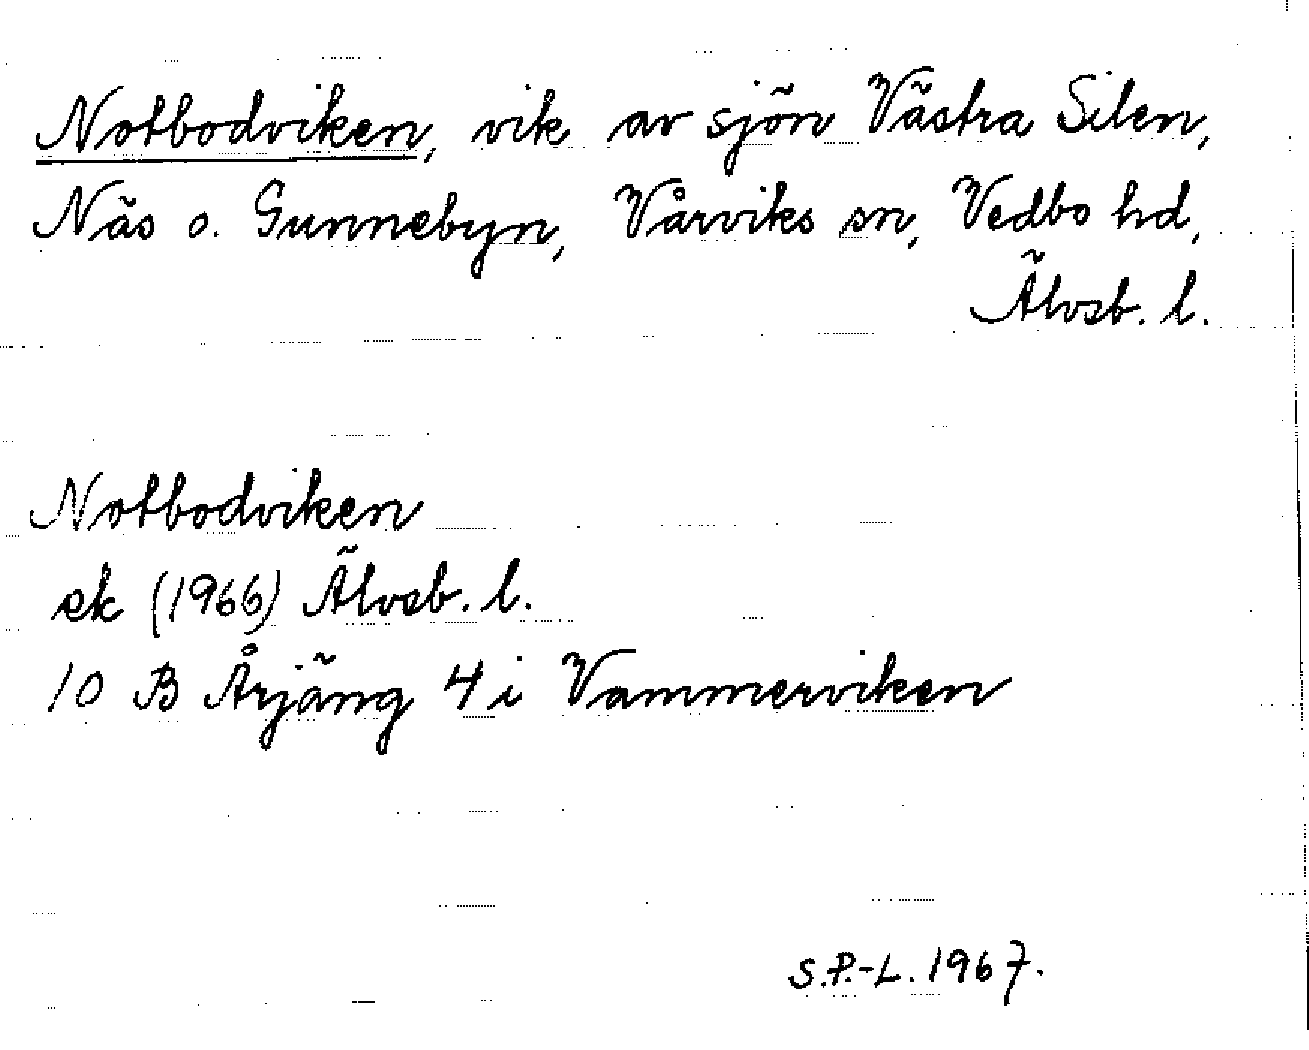 Notbodviken, vik av sjön Västra Silen,
Näs o. Gunnebyn, Vårviks sn, Vedbo hd,
Älvsb. l.
Notbodviken
ek (1966) Älvsb. l.
10 B Årjäng 4 i Vammerviken
S.P.-L. 1967.